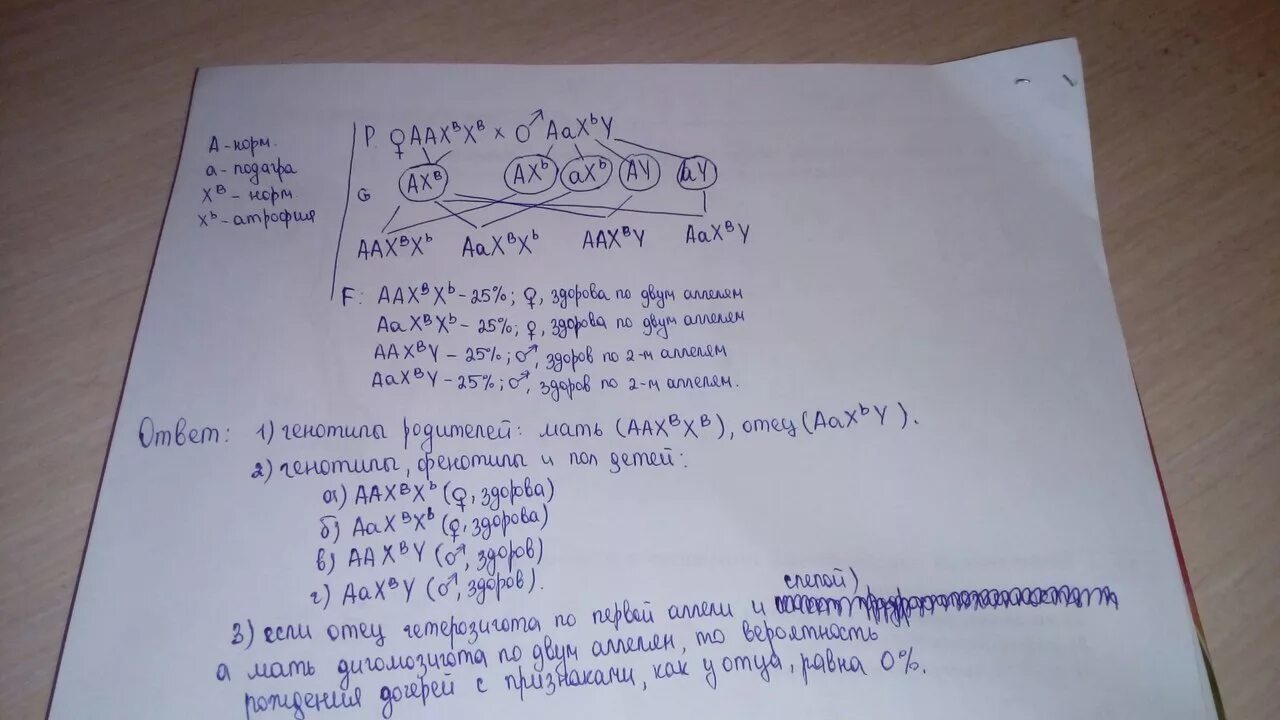 А - норм.
а - подагра
Xᴮ - норм.
Xᵇ - атрофия
P. ♀AAXᴮXᴮ × ♂AaXᵇY
G AXᴮ AXᵇ aXᵇ AY aY
AAXᴮXᵇ AaXᴮXᵇ AAXᴮY AaXᴮY
F: AAXᴮXᵇ - 25%; ♀, здорова по двум аллелям
AaXᴮXᵇ - 25%; ♀, здорова по двум аллелям
AAXᴮY - 25%; ♂, здоров по 2-м аллелям
AaXᴮY - 25%; ♂, здоров по 2-м аллелям.
Ответ: 1) генотипы родителей: мать (AAXᴮXᴮ), отец (AaXᵇY).
2) генотипы, фенотипы и пол детей:
а) AAXᴮXᵇ (♀, здорова)
б) AaXᴮXᵇ (♀, здорова)
в) AAXᴮY (♂, здоров)
г) AaXᴮY (♂, здоров).
3) если отец гетерозигота по первой аллели и слепой),
а мать дигомозигота по двум аллелям, то вероятность
рождения дочерей с признаками, как у отца, равна 0%.